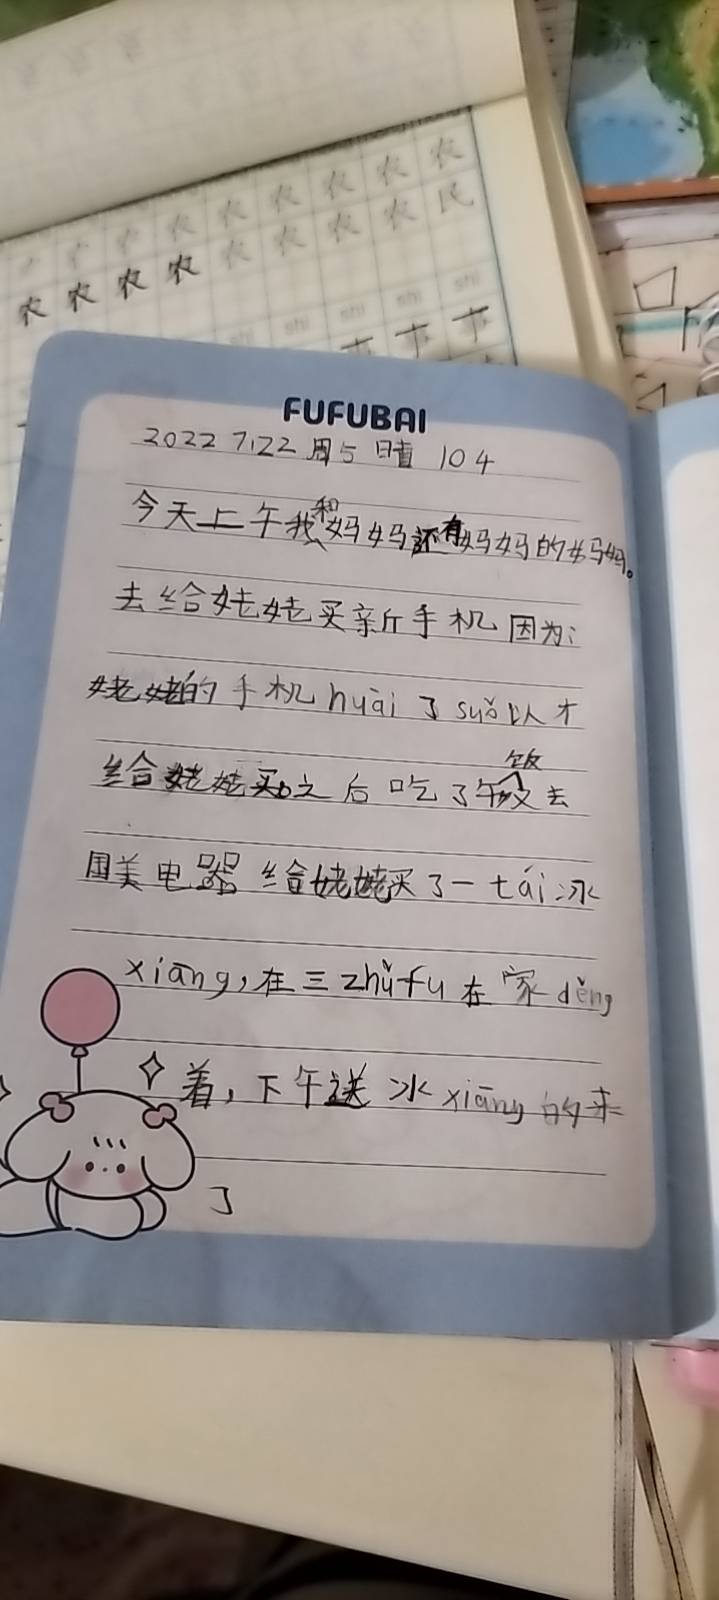 农 农 农 农 农 农
农 农 农 农 农 农 农 农 民
shi shi shi shi shi
事 事
FUFUBAI
2022 7.22 周5 晴 104
今天上午我和妈妈还有妈妈的妈妈。
去给姥姥买新手机因为:
姥姥的手机huài了suǒ以才
给姥姥买。之后吃了午饭去
国美电器给姥姥买了一tái冰
xiāng,在三zhǔfu在家děng
着,下午送冰xiāng的来
了